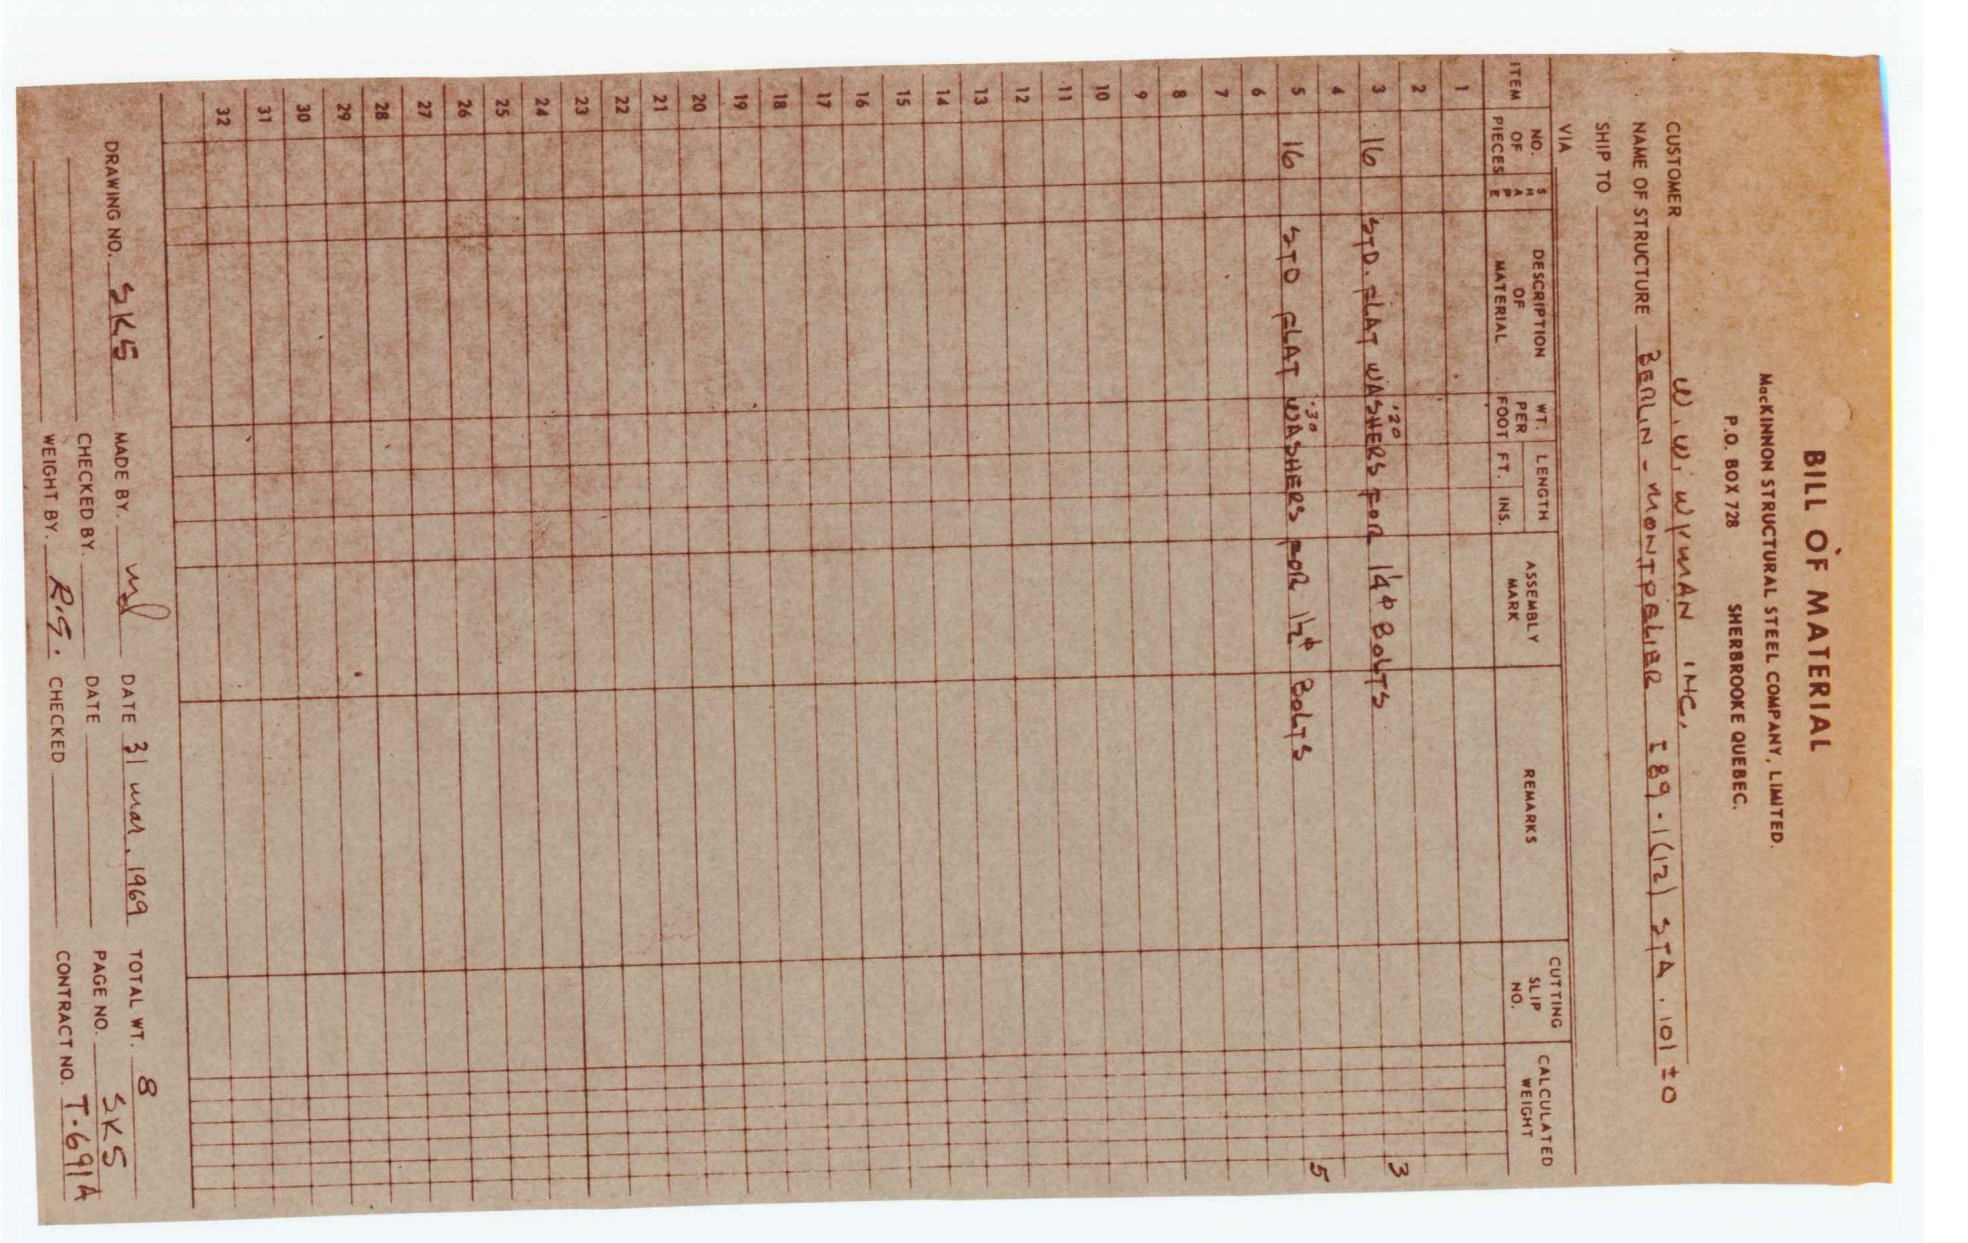 BILL OF MATERIAL
MacKINNON STRUCTURAL STEEL COMPANY, LIMITED.
P.O. BOX 728 SHERBROOKE QUEBEC.
CUSTOMER W. W. WYMAN INC.
NAME OF STRUCTURE BERLIN - MONTPELIER I 89-1(12) STA. 101±0
SHIP TO
VIA
ITEM NO. OF PIECES SHAPE DESCRIPTION OF MATERIAL WT. PER FOOT LENGTH FT. INS. ASSEMBLY MARK REMARKS CUTTING SLIP NO. CALCULATED WEIGHT
1
2
.20
3 16 STD. FLAT WASHERS FOR 1¼ φ BOLTS 3
4
.30
5 16 STD FLAT WASHERS FOR 1½ φ BOLTS 5
6
7
8
9
10
11
12
13
14
15
16
17
18
19
20
21
22
23
24
25
26
27
28
29
30
31
32
DRAWING NO. SK5 MADE BY. DATE 31 Mar. 1969 TOTAL WT. 8
CHECKED BY. DATE PAGE NO. SK5
WEIGHT BY. R.G. CHECKED CONTRACT NO. T-691A